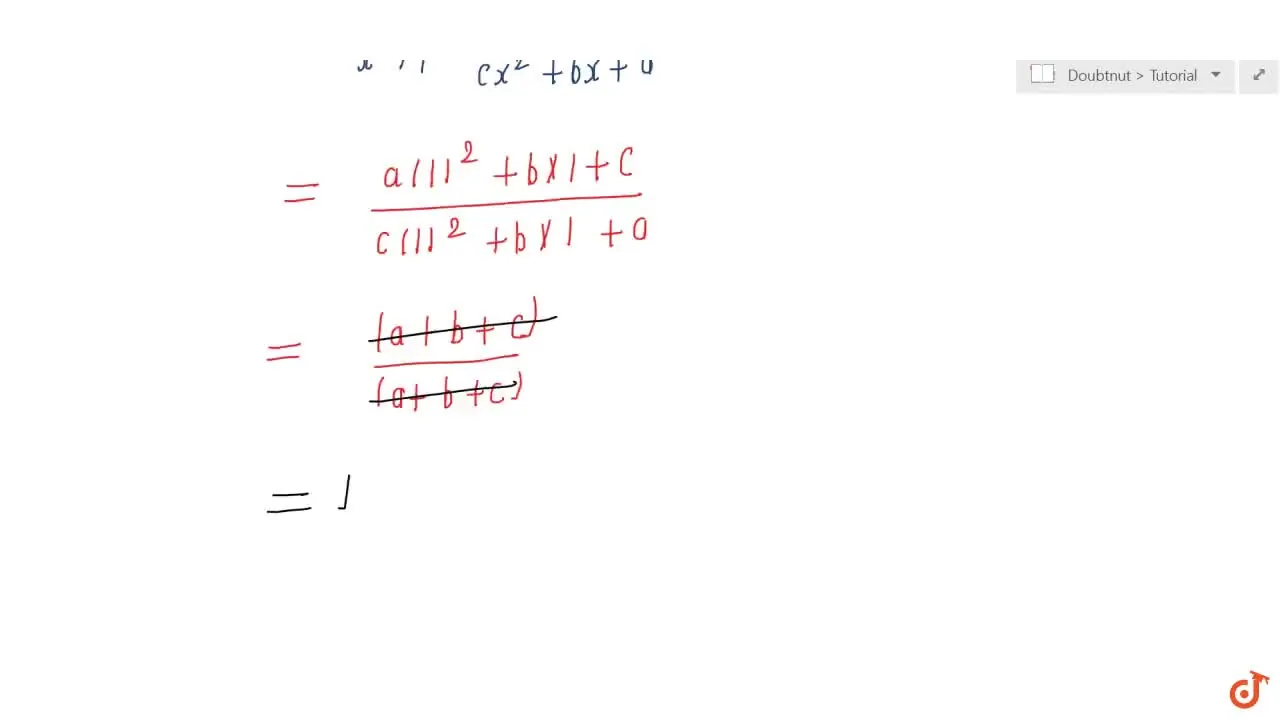 cx² + bx + a
Doubtnut > Tutorial
= a(1)² + b×1 + c
c(1)² + b×1 + a
= (a + b + c)
(a + b + c)
= 1